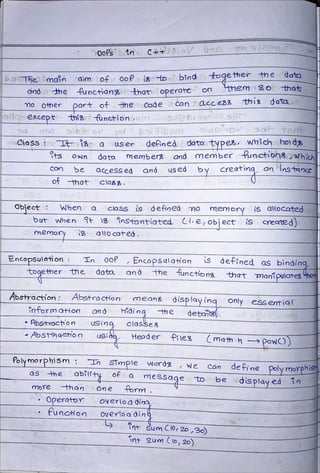 OOPs in C++
The main aim of OOP is to bind together the data
and the functions that operate on them so that
no other part of the code can access this data
except this function.
Class : It is a user defined data types, which holds
its own data members and member functions, which
can be accessed and used by creating an instance
of that class.
Object : When a class is defined no memory is allocated
but when it is instantiated (i.e., object is created)
memory is allocated.
Encapsulation : In OOP, Encapsulation is defined as binding
together the data and the functions that manipulates them
Abstraction : Abstraction means displaying only essential
information and hiding the details.
• Abstraction using classes
• Abstraction using Header files (math.h → pow())
Polymorphism : In simple words, we can define polymorphism
as the ability of a message to be displayed in
more than one form.
• Operator overloading
• Function overloading
↳ int sum (10, 20, 30)
int sum (10, 20)